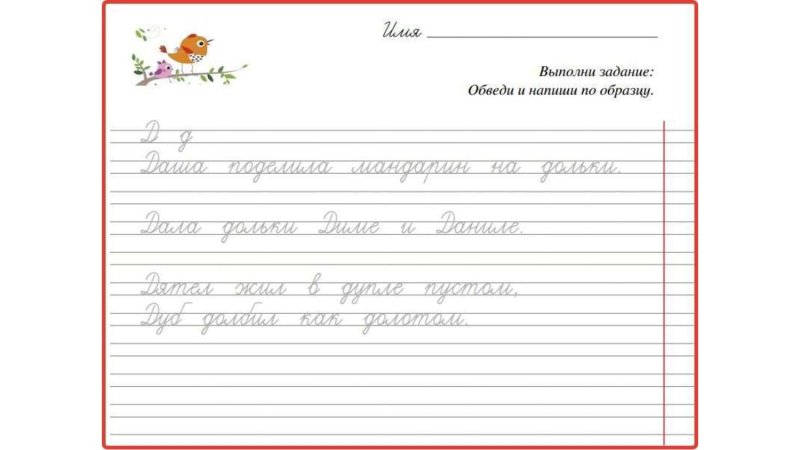 Имя
Выполни задание:
Обведи и напиши по образцу.
Д д
Даша поделила мандарин на дольки.
Дала дольки Диме и Даниле.
Дятел жил в дупле пустом,
Дуб долбил как долотом.